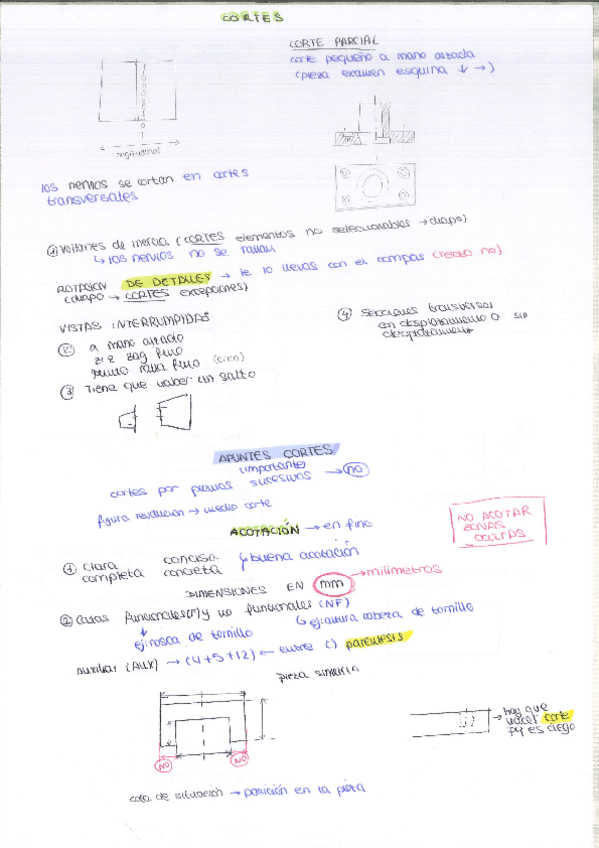 CORTES
CORTE PARCIAL
corte pequeño a mano alzada
(pieza examen esquina ↓ →)
longitudinal
los nervios se cortan en cortes
transversales
① Volantes de inercia (CORTES elementos no seleccionables → diapo)
↳ los nervios no se rallan
ROTACION DE DETALLES → te lo llevas con el compas (recto no)
(diapo → CORTES excepciones)
VISTAS INTERRUMPIDAS
② a mano alzado
zig zag fino
fino (cien)
③ Tiene que haber un salto
④ Secciones transversas
con desplazamiento o sin
desplazamiento
APUNTES CORTES
(importante)
cortes por planos sucesivos → NO
figura revolución → medio corte
ACOTACIÓN → en fino
NO ACOTAR
ZONAS
OCULTAS
① clara concisa
completa concreta y buena acotación
DIMENSIONES EN mm → milimetros
② Cotas funcionales (F) y no funcionales (NF)
↳ ej: altura cabeza de tornillo
ej: rosca de tornillo
auxiliar (AUX) → (4+5+12) ← entre () parentesis
pieza simetrica
NO
NO
hay que
hacer corte
pq es ciego
cota de situación → posición en la pieza